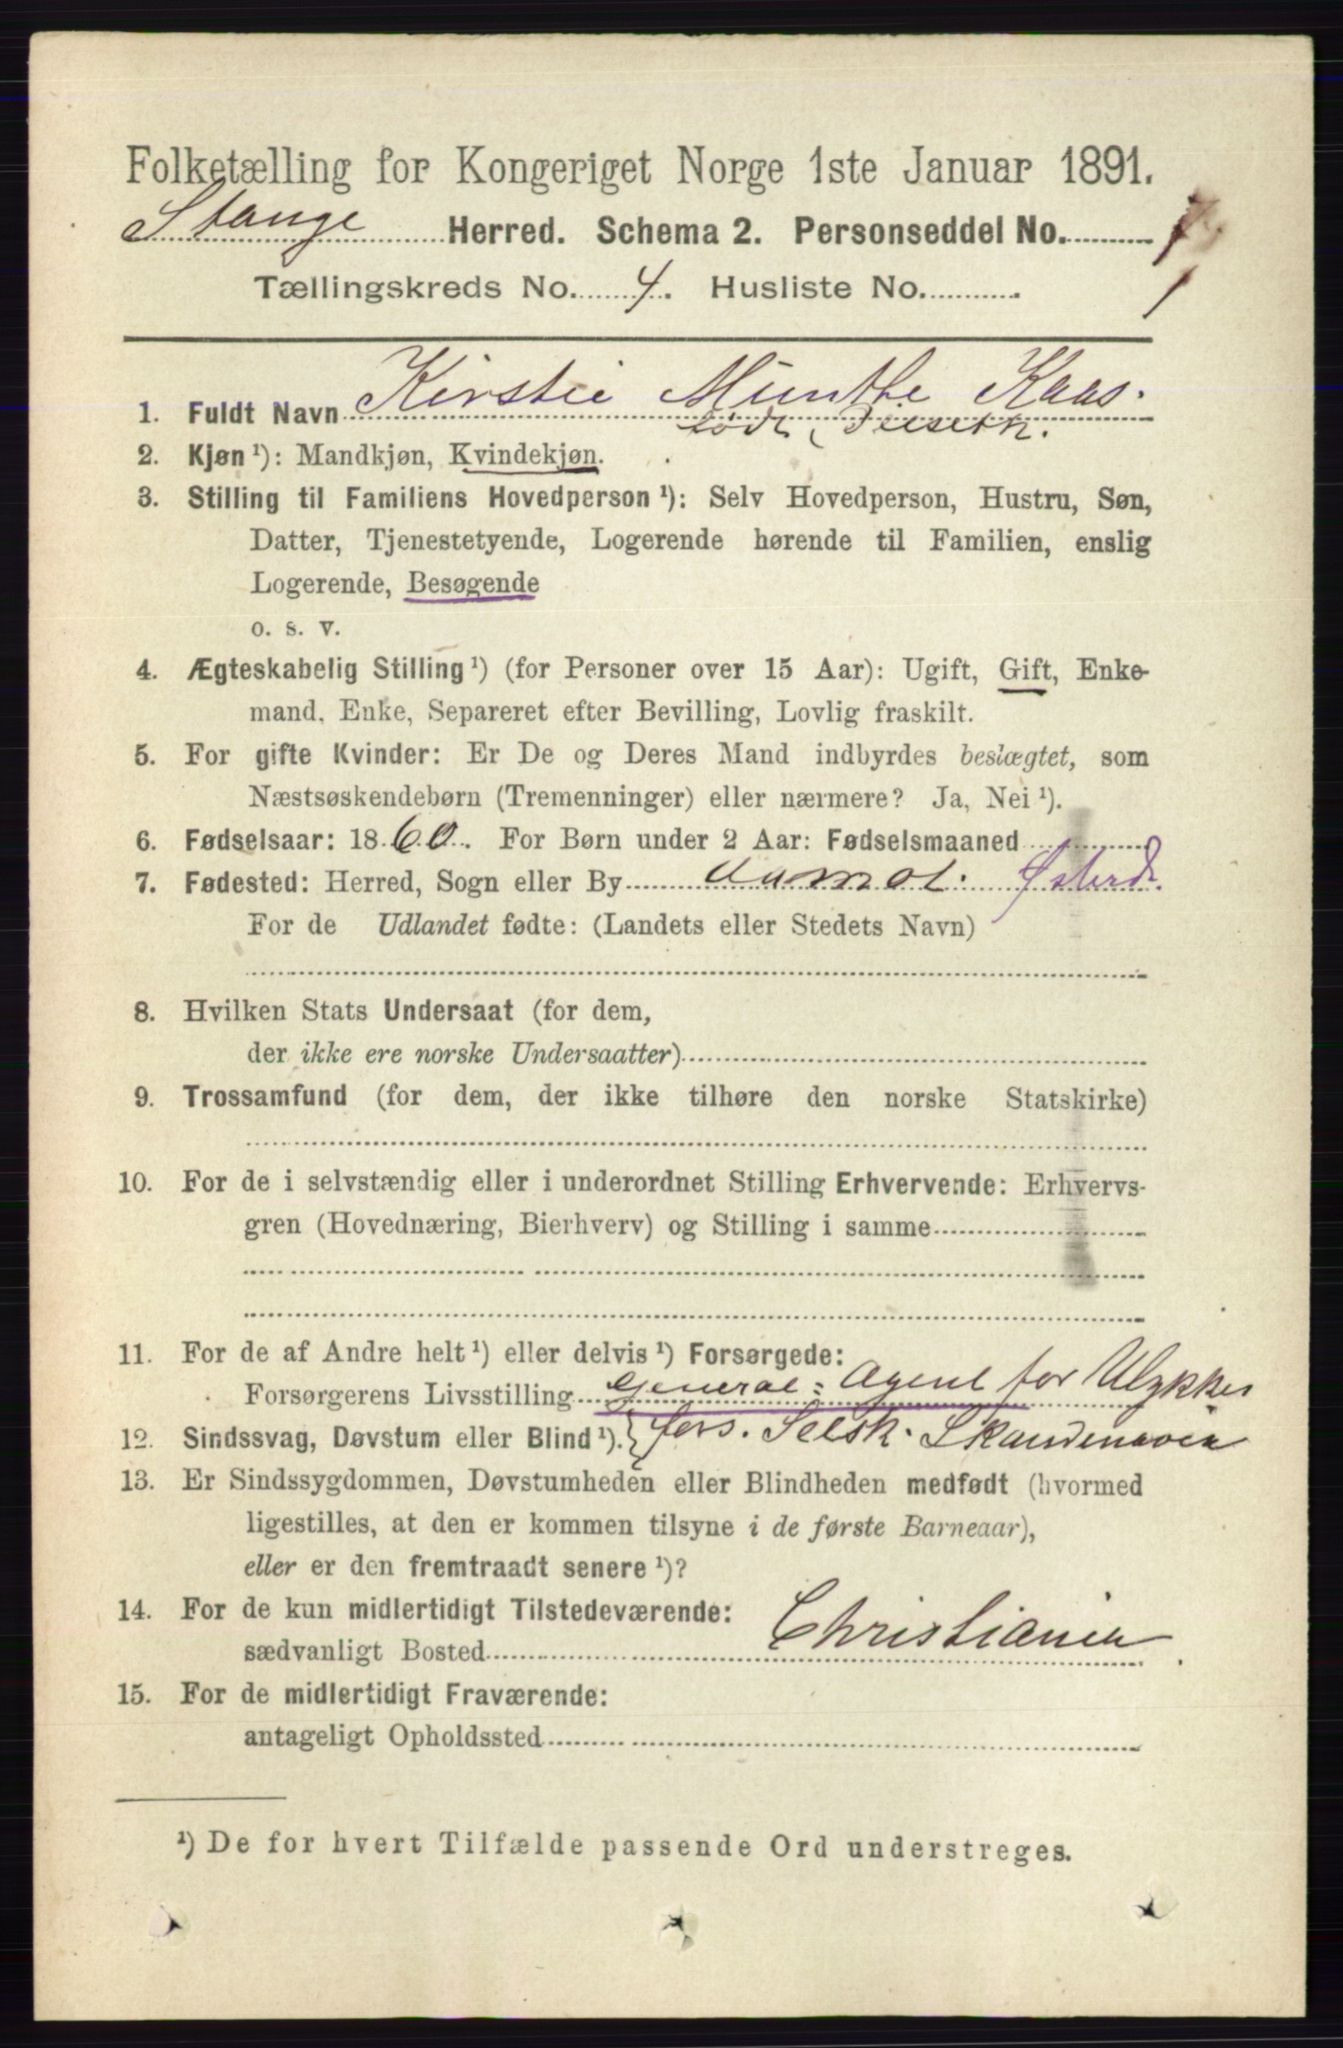 Folketælling for Kongeriget Norge 1ste Januar 1891.
Stange Herred. Schema 2. Personseddel No. 7
Tællingskreds No. 4. Husliste No. 1
1. Fuldt Navn Kirstie Munthe Kaas.
født
2. Kjøn ¹): Mandkjøn, Kvindekjøn.
3. Stilling til Familiens Hovedperson ¹): Selv Hovedperson, Hustru, Søn,
Datter, Tjenestetyende, Logerende hørende til Familien, enslig
Logerende, Besøgende
o. s. v.
4. Ægteskabelig Stilling ¹) (for Personer over 15 Aar): Ugift, Gift, Enke-
mand, Enke, Separeret efter Bevilling, Lovlig fraskilt.
5. For gifte Kvinder: Er De og Deres Mand indbyrdes beslægtet, som
Næstsøskendebørn (Tremenninger) eller nærmere? Ja, Nei ¹).
6. Fødselsaar: 1860. For Børn under 2 Aar: Fødselsmaaned
7. Fødested: Herred, Sogn eller By Aamot. Østerd.
For de Udlandet fødte: (Landets eller Stedets Navn)
8. Hvilken Stats Undersaat (for dem,
der ikke ere norske Undersaatter)
9. Trossamfund (for dem, der ikke tilhøre den norske Statskirke)
10. For de i selvstændig eller i underordnet Stilling Erhvervende: Erhvervs-
gren (Hovednæring, Bierhverv) og Stilling i samme
11. For de af Andre helt ¹) eller delvis ¹) Forsørgede:
Forsørgerens Livsstilling General-Agent for Ulykkes
12. Sindssvag, Døvstum eller Blind ¹). fors. Selsk. Skandinavia
13. Er Sindssygdommen, Døvstumheden eller Blindheden medfødt (hvormed
ligestilles, at den er kommen tilsyne i de første Barneaar),
eller er den fremtraadt senere ¹)?
14. For de kun midlertidigt Tilstedeværende:
sædvanligt Bosted Christiania
15. For de midlertidigt Fraværende:
antageligt Opholdssted
¹) De for hvert Tilfælde passende Ord understreges.